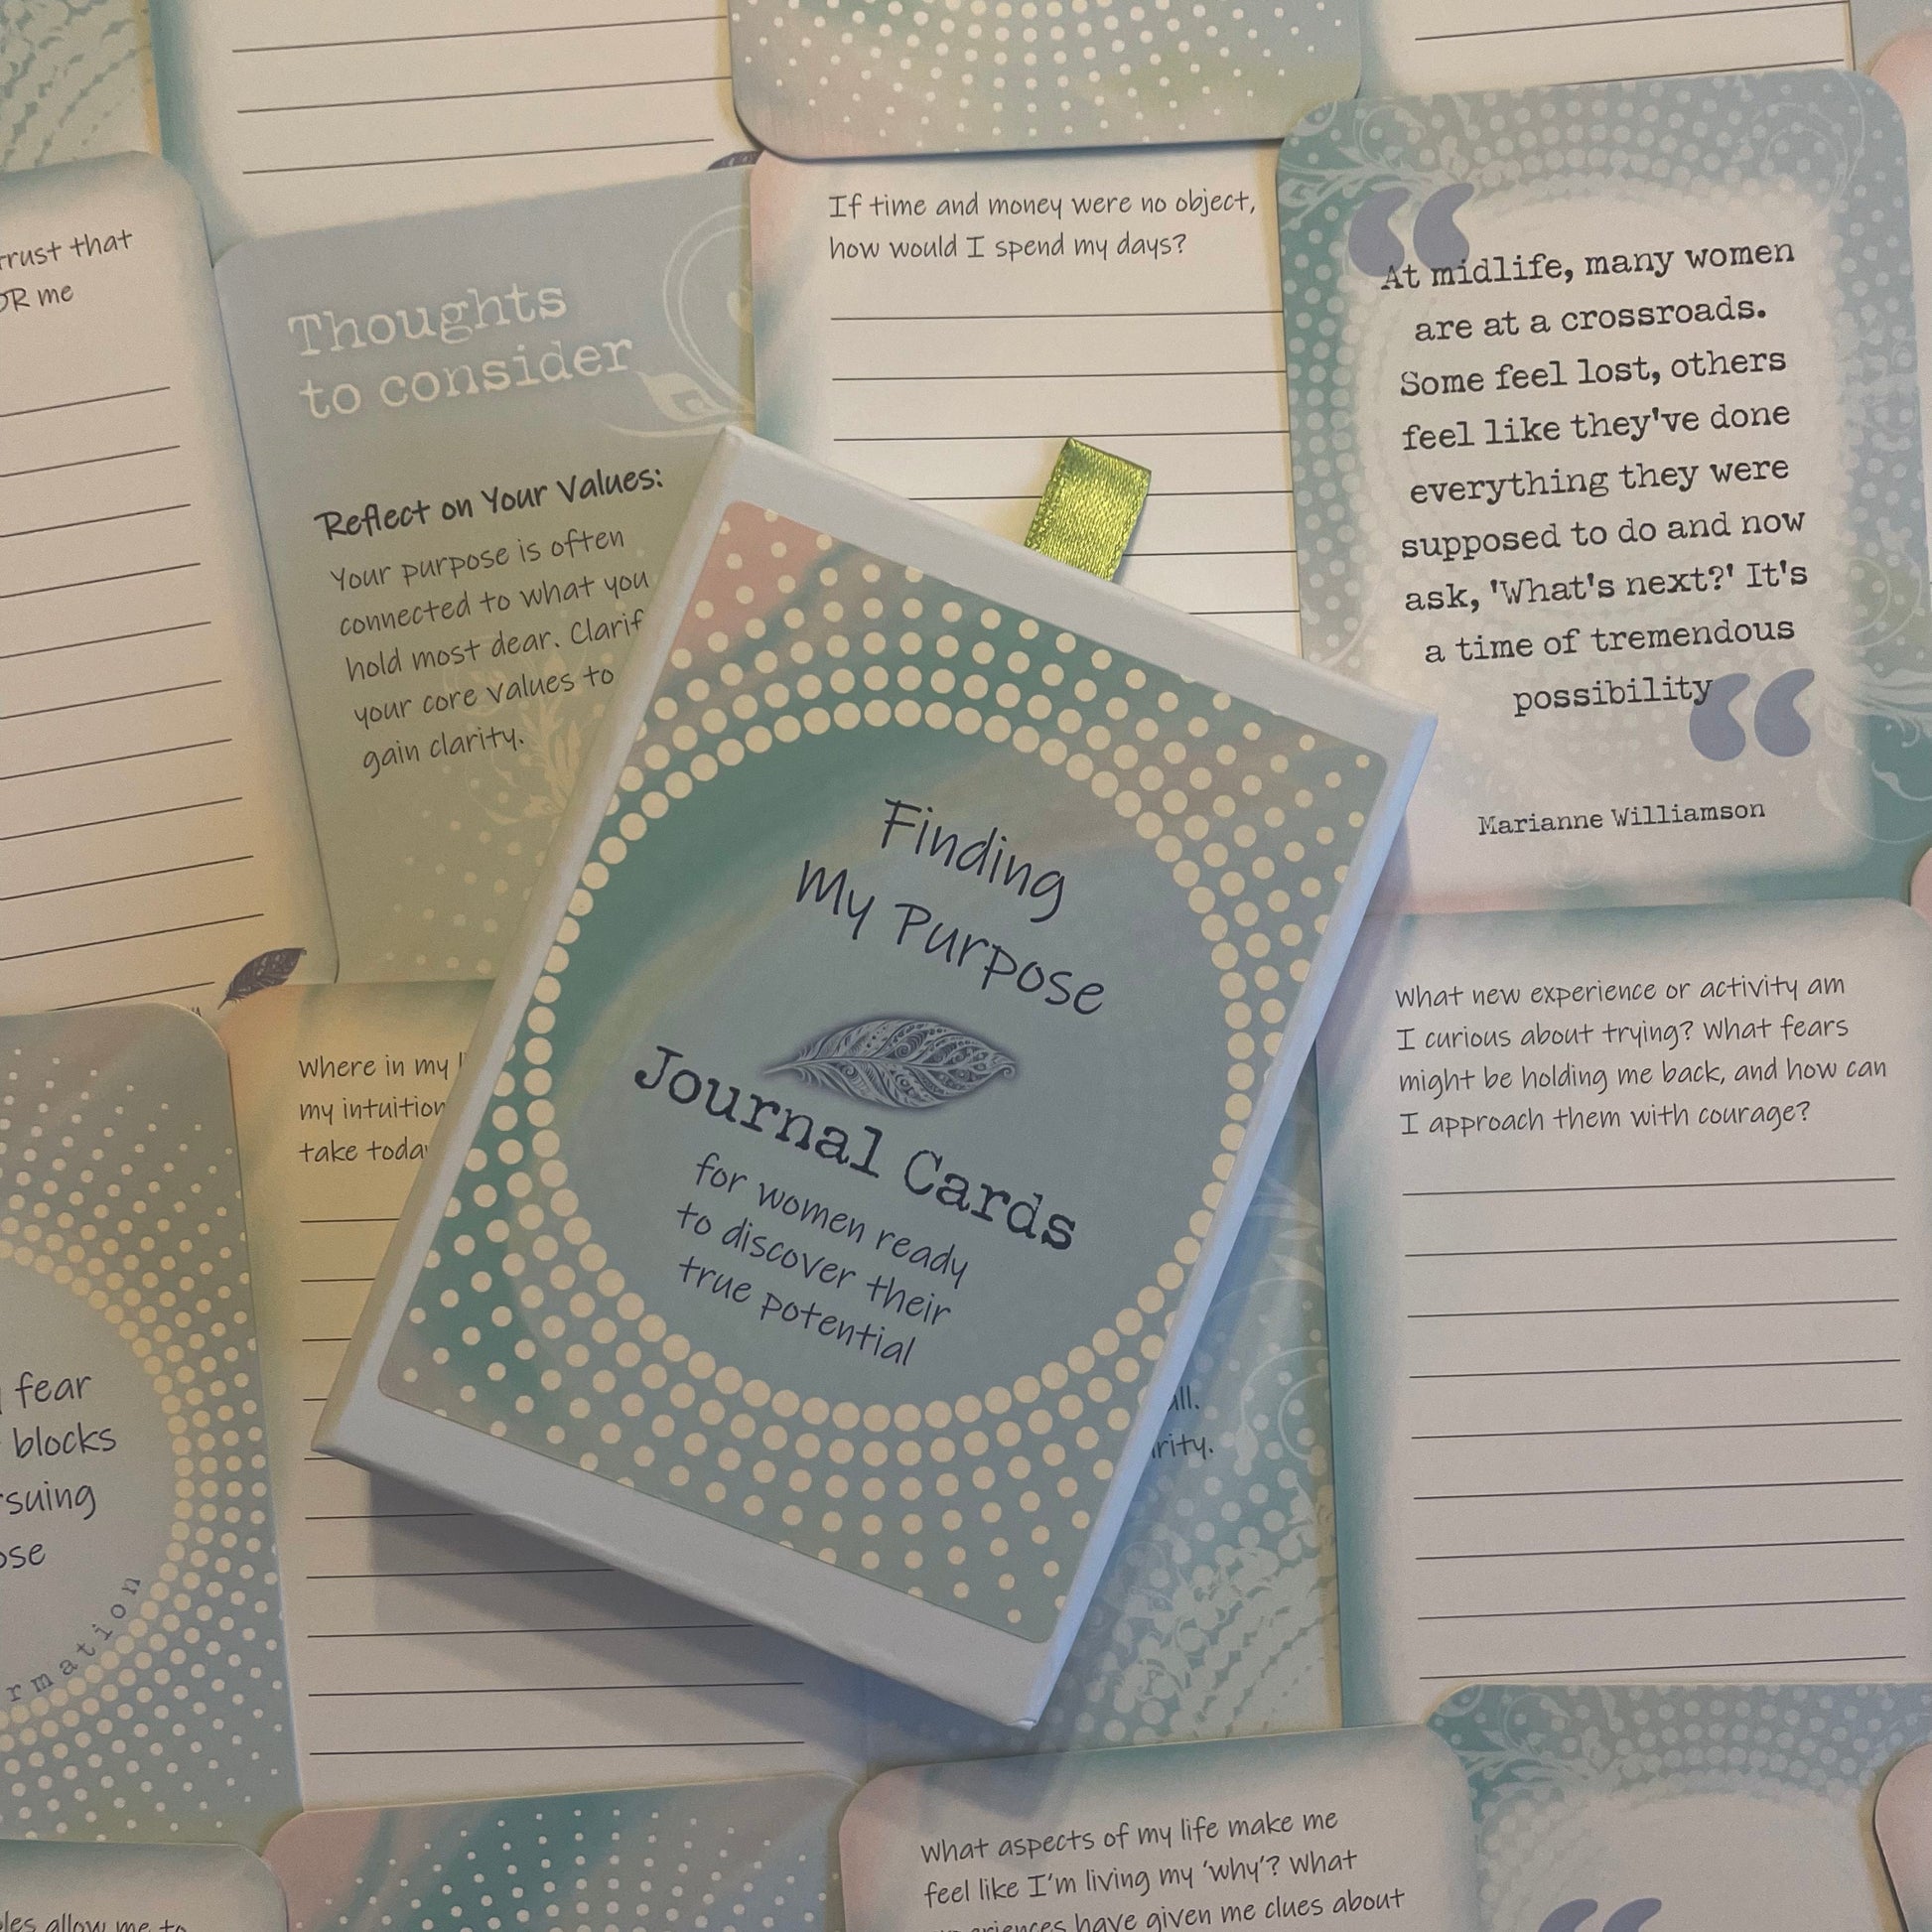 If time and money were no object,
how would I spend my days?
At midlife, many women
are at a crossroads.
Some feel lost, others
feel like they've done
everything they were
supposed to do and now
ask, 'What's next?' It's
a time of tremendous
possibility
Marianne Williamson
trust that
OR me
Thoughts
to consider
Reflect on Your Values:
Your purpose is often
connected to what you
hold most dear. Clarif
your core values to
gain clarity.
Finding
My Purpose
Journal Cards
for women ready
to discover their
true potential
Where in my
my intuition
take today
What new experience or activity am
I curious about trying? What fears
might be holding me back, and how can
I approach them with courage?
fear
blocks
rsuing
ose
rmation
all.
rity.
What aspects of my life make me
feel like I'm living my 'why'? What
experiences have given me clues about
les allow me to